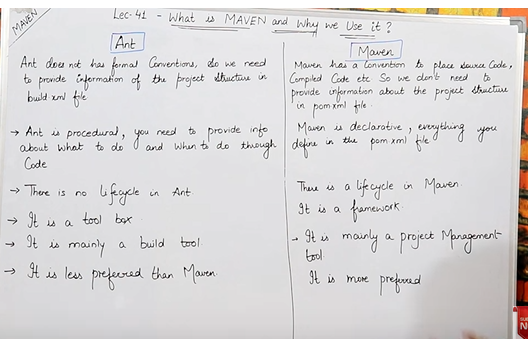 MAVEN
Lec-41 - What is MAVEN and Why we Use it?
Ant
Ant does not has formal Conventions, so we need
to provide information of the project structure in
build.xml file
→ Ant is procedural, you need to provide info
about what to do and when to do through
Code
→ There is no lifecycle in Ant.
→ It is a tool box
→ It is mainly a build tool
→ It is less preferred than Maven.
Maven
Maven has a Convention to place source Code,
Compiled Code etc So we don't need to
provide information about the project structure
in pom.xml file.
Maven is declarative, everything you
define in the pom.xml file
There is a lifecycle in Maven
It is a framework.
→ It is mainly a project Management
tool
It is more preferred